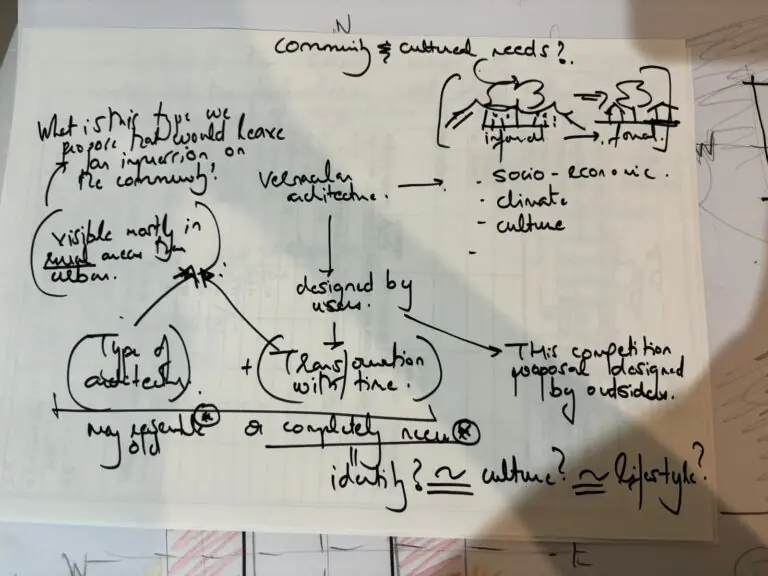 N
Community & cultural needs?
informal → formal
What is this type we
propose that would leave
an impression on
the community?
Vernacular
architecture. →
- socio-economic.
- climate
- culture
-
visible mostly in
rural areas than
urban.
designed by
users.
(Type of
architecture).
+ (Transformation
with time.)
This competition
proposal designed
by outsiders.
may resemble
old
or completely new
identity? ≃ culture? ≃ lifestyle?